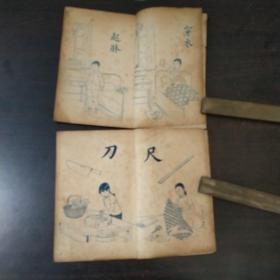 穿衣
起牀
尺
刀